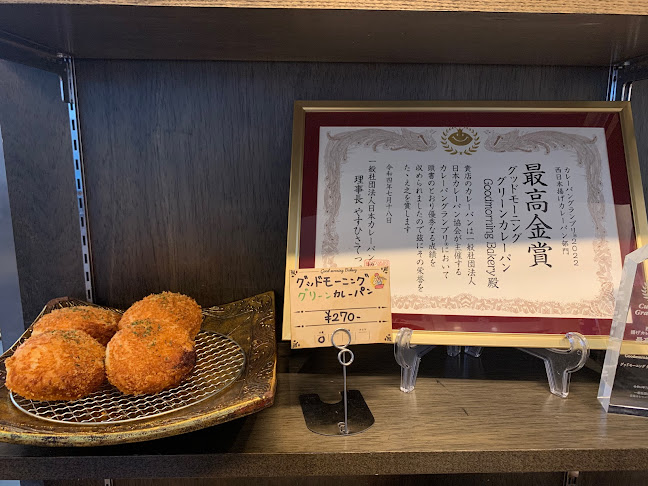 カレーパングランプリ®2022
西日本揚げカレーパン部門
最高金賞
グッドモーニング
グリーンカレーパン
Goodmorning Bakery 殿
貴店のカレーパンは一般社団法人
日本カレーパン協会が主催する
カレーパングランプリ®において
頭書のとおり優秀なる成績を
収められましたので茲にその栄誉を
たゝえ之を賞します
令和四年七月十八日
一般社団法人日本カレーパン
理事長 やすひさてっ
Goodmorning Bakery
グッドモーニング
グリーンカレーパン
¥270-